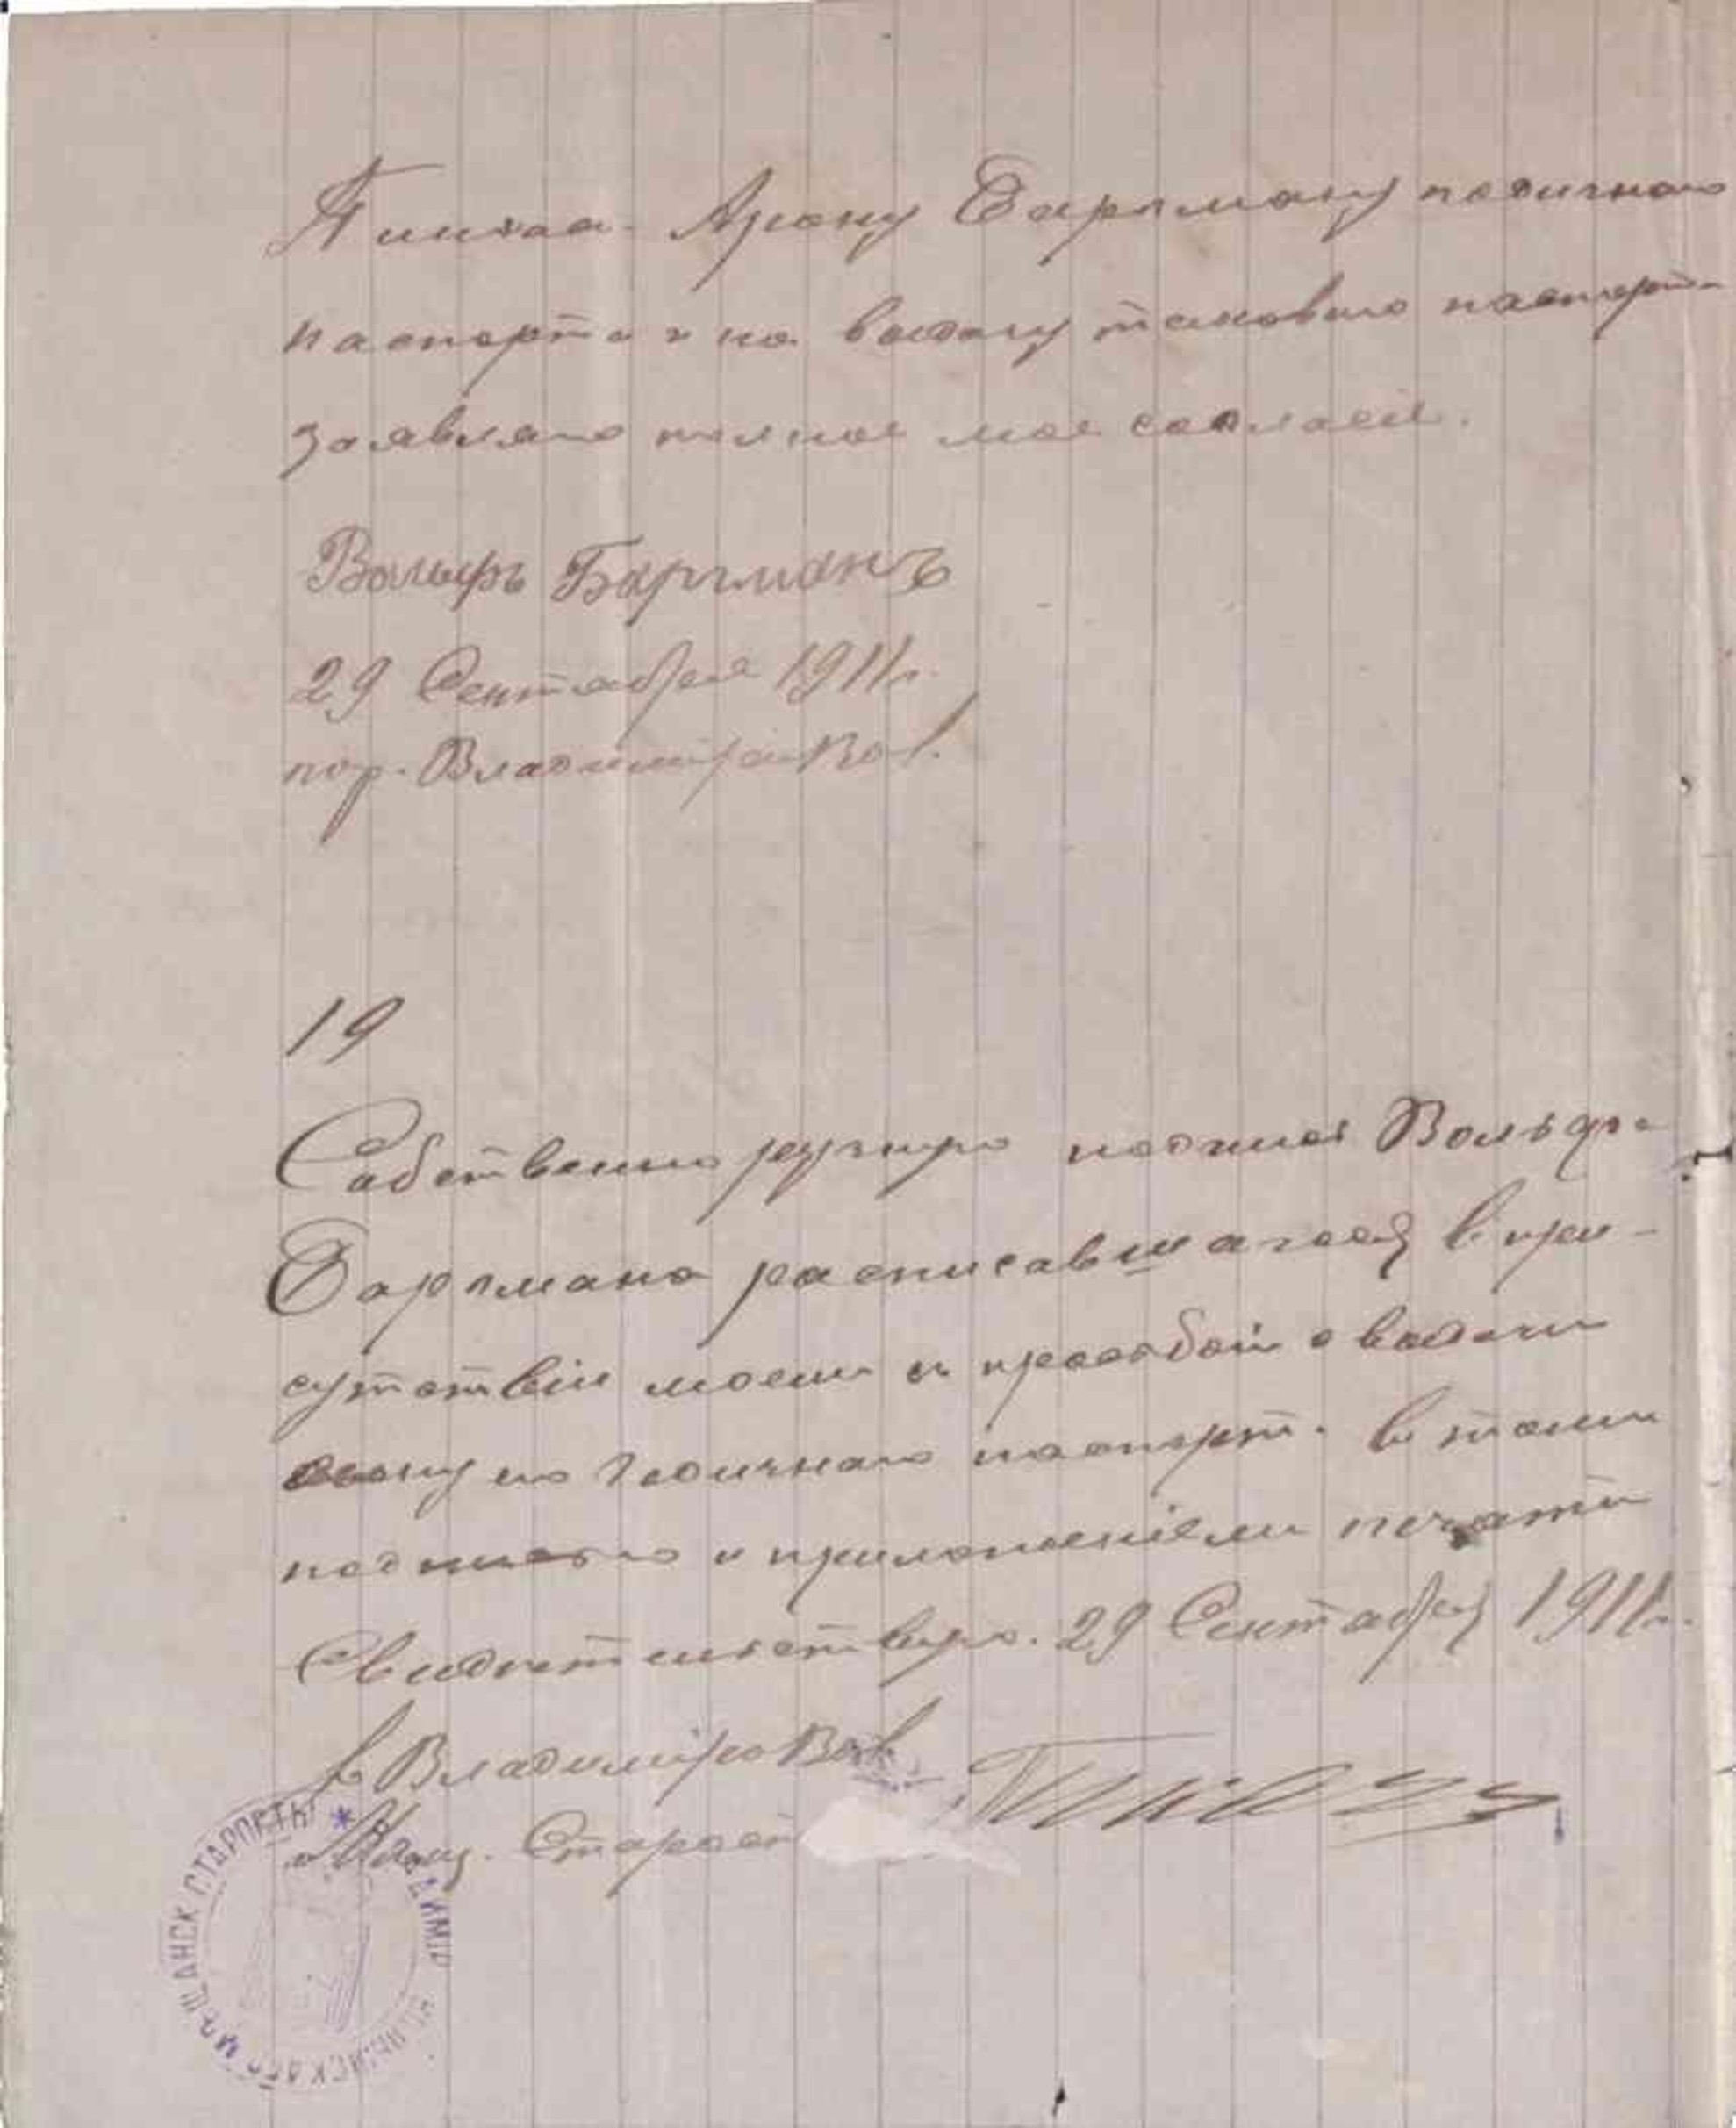 Пинхас-Арону Баргману годичнаго
паспорта и на выдачу таковаго паспорта
заявляю полное мое согласіе.
Вольфъ Баргманъ
29 Сентября 1911 г.
гор. Владиміръ Вол.
19
Собственноручную подпись Вольфа
Баргмана расписавшагося в при-
сутствіи моемъ съ просьбой о выдачи
сыну его годичнаго паспорт. в томъ
подписью и приложеніемъ печати
Свидетельствую. 29 Сентября 1911 г.
г. Владиміръ Вол.
Мѣщ. Старост
МѢЩАНСК СТАРОСТЫ * ВЛАДИМІР ВОЛЫНСКАГО